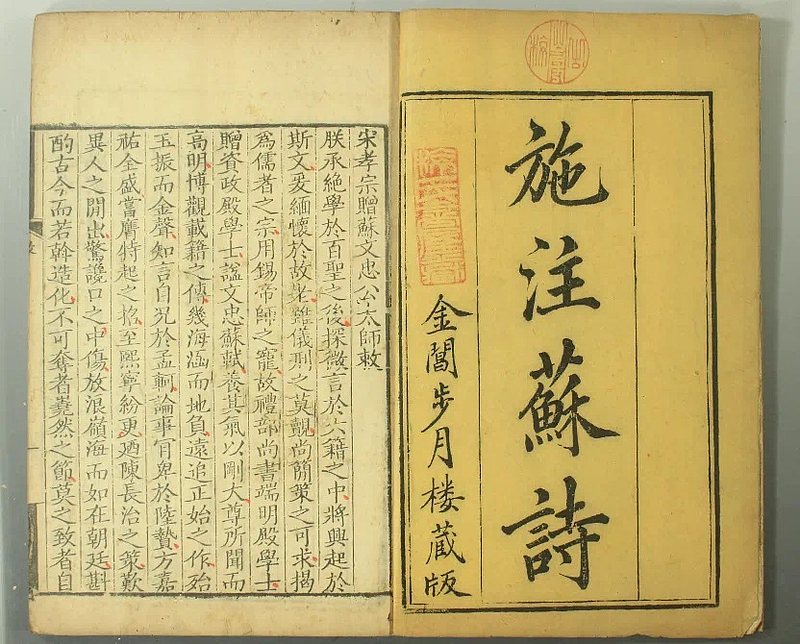 施注蘇詩
金閶步月楼蔵版
宋孝宗贈蘇文忠公太師敕
朕承絶學於百聖之後探微言於六籍之中將興起於
斯文爰緬懷於故老雖儀刑之莫覿尚簡策之可求揭
爲儒者之宗用錫帝師之寵故禮部尚書端明殿學士
贈資政殿學士謚文忠蘇軾養其氣以剛大尊所聞而
高明博觀載籍之傳幾海涵而地負遠追正始之作殆
玉振而金聲知言自況於孟軻論事肎卑於陸贄方嘉
祐全盛嘗膺特起之招至熙寧紛更廼陳長治之策歎
異人之間出驚讒口之中傷放浪嶺海而如在朝廷斟
酌古今而若斡造化不可奪者嶤然之節莫之致者自